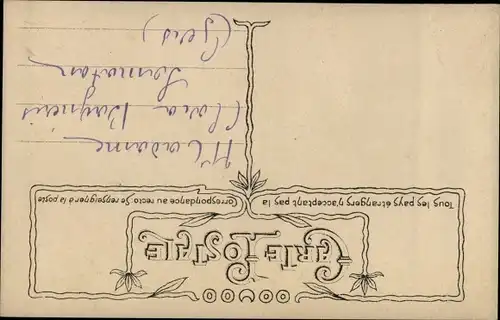 CARTE POSTALE
Tous les pays étrangers n'acceptant pas la correspondance au recto se renseigner à la poste
Madame
Clara Bagneris
Samatan
(Gers)